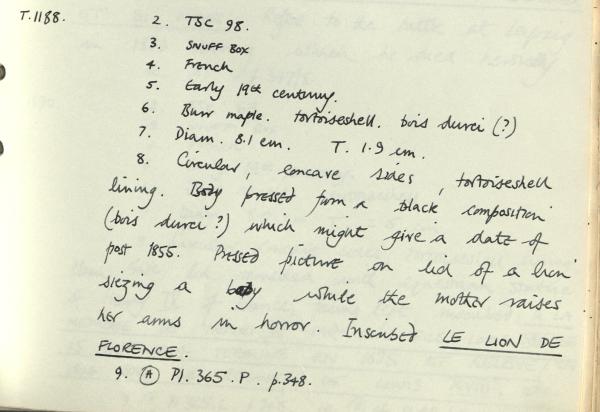 T.1188. 2. TSC 98.
3. SNUFF BOX
4. French
5. Early 19th century.
6. Burr maple. tortoiseshell. bois durci (?)
7. Diam. 8.1 cm. T. 1.9 cm.
8. Circular, concave sides, tortoiseshell
lining. Body pressed from a black composition
(bois durci ?) which might give a date of
post 1855. Pressed picture on lid of a lion
siezing a baby while the mother raises
her arms in horror. Inscribed LE LION DE
FLORENCE.
9. A Pl. 365. P. p.348.